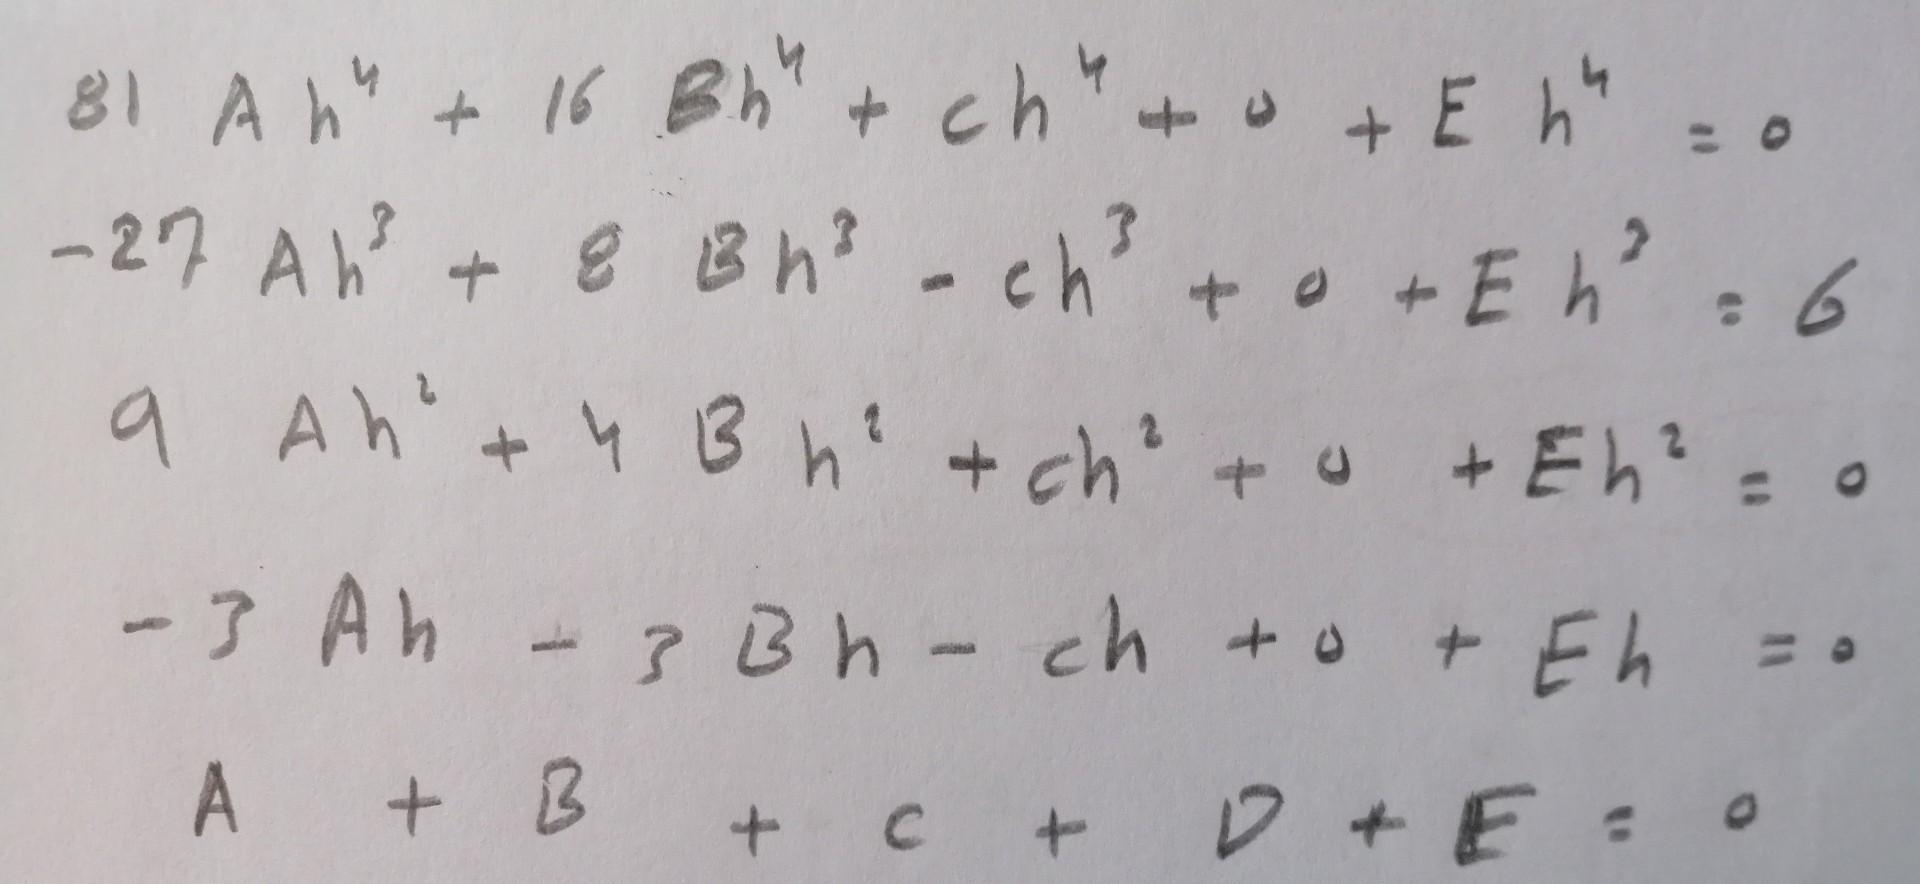 81 A h⁴ + 16 Bh⁴ + ch⁴ + 0 + E h⁴ = 0
-27 Ah³ + 8 Bh³ - ch³ + 0 + E h³ = 6
9 Ah² + 4 B h² + ch² + 0 + Eh² = 0
-3 Ah - 3 Bh - ch + 0 + Eh = 0
A + B + c + D + E = 0